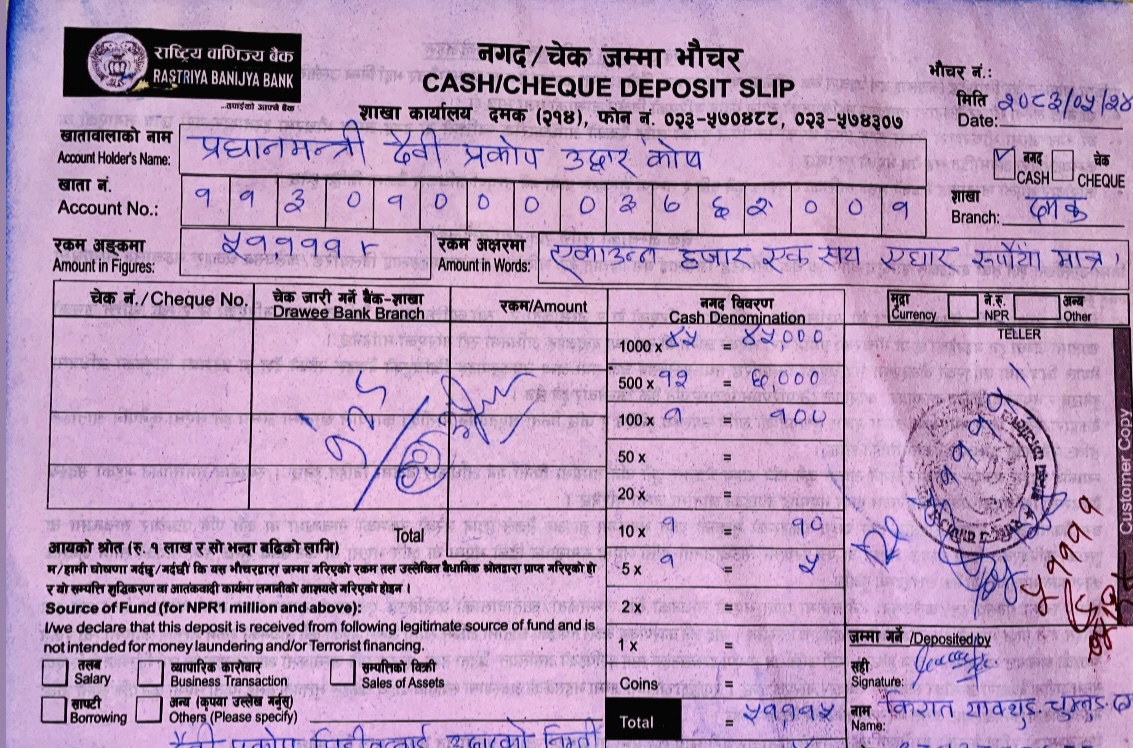 राष्ट्रिय वाणिज्य बैंक
RASTRIYA BANIJYA BANK
...तपाईंको आफ्नै बैंक
नगद/चेक जम्मा भौचर
CASH/CHEQUE DEPOSIT SLIP
शाखा कार्यालय दमक (२१४), फोन नं. ०२३-५७०४८८, ०२३-५७४३०७
भौचर नं.:
मिति २०८३/०५/२४
Date:
खातावालाको नाम प्रधानमन्त्री दैवी प्रकोप उद्वार कोष
Account Holder's Name:
नगद CASH चेक CHEQUE
खाता नं.
Account No.: ११३०१००००३६६२००१
शाखा
Branch: दमक
रकम अङ्कमा
Amount in Figures: ५११११
रकम अक्षरमा
Amount in Words: एकाउन्न हजार एक सय एघार रूपैयाँ मात्र।
चेक नं./Cheque No.
चेक जारी गर्ने बैंक-शाखा
Drawee Bank Branch
रकम/Amount
नगद विवरण
Cash Denomination
मुद्रा Currency ने.रु. NPR अन्य Other
TELLER
1000 x ४५ = ४५,०००
500 x १२ = ६,०००
100 x १ = १००
50 x =
20 x =
10 x १ = १०
5 x १ = ५
2 x =
1 x =
Coins =
Total = ५१११५
५११११
५११११
Customer Copy
Total
आयको श्रोत (रु. १ लाख र सो भन्दा बढिको लागि)
म/हामी घोषणा गर्दछु/गर्दछौं कि यस भौचरद्वारा जम्मा गरिएको रकम तल उल्लेखित बैधानिक श्रोतद्वारा प्राप्त गरिएको हो
र यो सम्पत्ति शुद्धिकरण वा आतंकवादी कार्यमा लगानीको आशयले गरिएको होइन।
Source of Fund (for NPR1 million and above):
I/we declare that this deposit is received from following legitimate source of fund and is
not intended for money laundering and/or Terrorist financing.
तलब
Salary
व्यापारिक कारोवार
Business Transaction
सम्पत्तिको विक्री
Sales of Assets
सापटी
Borrowing
अन्य (कृपया उल्लेख गर्नुस)
Others (Please specify)
दैवी प्रकोप
जम्मा गर्ने /Deposited by
सही
Signature:
नाम किरात याक्थुङ चुम्लुङ
Name: